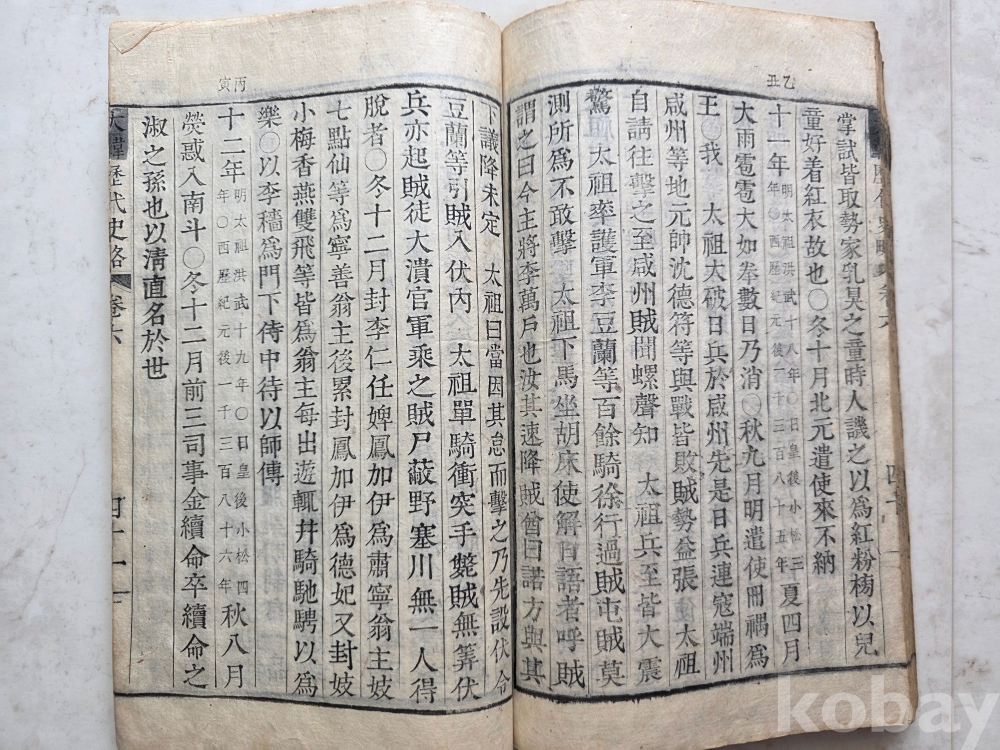 乙丑
掌試皆取勢家乳臭之童時人譏之以爲紅粉榜以兒
童好着紅衣故也〇冬十月北元遣使來不納
十一年明太祖洪武十八年〇日皇後小松三年〇西歷紀元後一千三百八十五年夏四月
大雨雹雹大如拳數日乃消〇秋九月明遣使冊禑爲
王〇我 太祖大破日兵於咸州先是日兵連寇端州
咸州等地元帥沈德符等與戰皆敗賊勢益張 太祖
自請往擊之至咸州賊聞螺聲知 太祖兵至皆大震
驚 太祖率護軍李豆蘭等百餘騎徐行過賊屯賊莫
測所爲不敢擊 太祖下馬坐胡床使解日語者呼賊
謂之曰今主將李萬戶也汝其速降賊酋曰諾方與其
丙寅
下議降未定 太祖曰當因其怠而擊之乃先設伏令
豆蘭等引賊入伏內 太祖單騎衝突手斃賊無筭伏
兵亦起賊徒大潰官軍乘之賊尸蔽野塞川無一人得
脫者〇冬十二月封李仁任婢鳳加伊爲肅寧翁主妓
七點仙等爲寧善翁主後累封鳳加伊爲德妃又封妓
小梅香燕雙飛等皆爲翁主每出遊輒幷騎馳騁以爲
樂〇以李穡爲門下侍中待以師傅
十二年明太祖洪武十九年〇日皇後小松四年〇西歷紀元後一千三百八十六年秋八月
熒惑入南斗〇冬十二月前三司事金續命卒續命之
淑之孫也以淸直名於世
大韓歷代史略 卷六